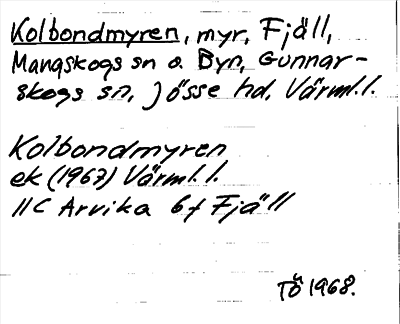 Kolbondmyren, myr, Fjäll,
Mangskogs sn o. Byn, Gunnar-
skogs sn, Jösse hd, Värml.l.
Kolbondmyren
ek (1967) Värml.l.
11C Arvika 6f Fjäll
TÖ 1968.